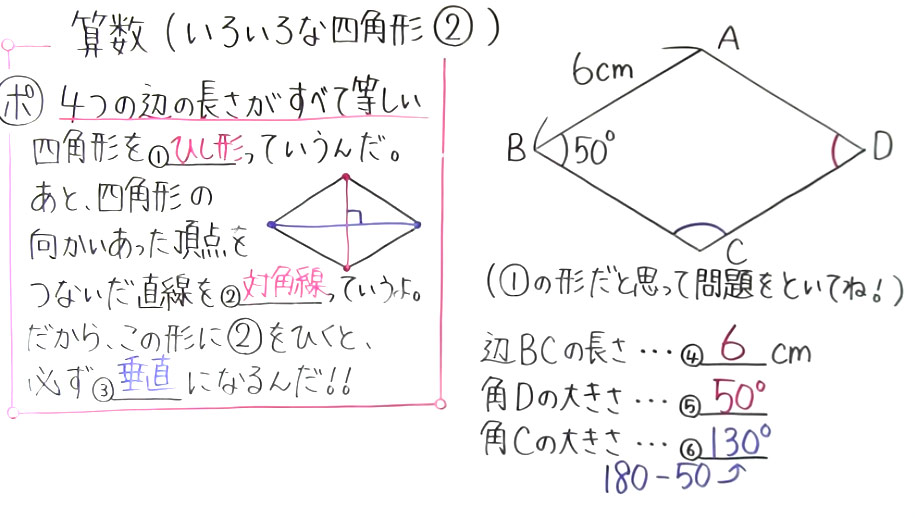 算数(いろいろな四角形②)
ポ 4つの辺の長さがすべて等しい
四角形を①ひし形っていうんだ。
あと、四角形の
向かいあった頂点を
つないだ直線を②対角線っていうよ。
だから、この形に②をひくと、
必ず③垂直になるんだ!!
A
6cm
B 50° D
C
(①の形だと思って問題をといてね!)
辺BCの長さ…④6cm
角Dの大きさ…⑤50°
角Cの大きさ…⑥130°
180-50